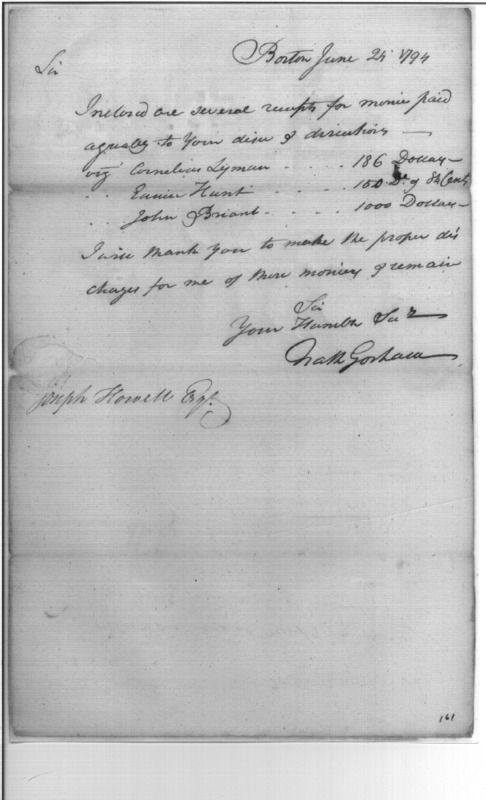 Boston June 24 1794
Sir
Inclosed are several receipts for monies paid
agreably to Your & directions
viz Cornelius Lyman . . . . 186 Dollars
. . Eunice Hunt . . . . . 150 Do & 84 Cents
. . John Briant . . . . . 1000 Dollars
I wise thank You to make the proper dis
charges for me of these monies & remain
Sir
Your Humble Sert
Nath Gorham
Joseph Howell Esqr.
161